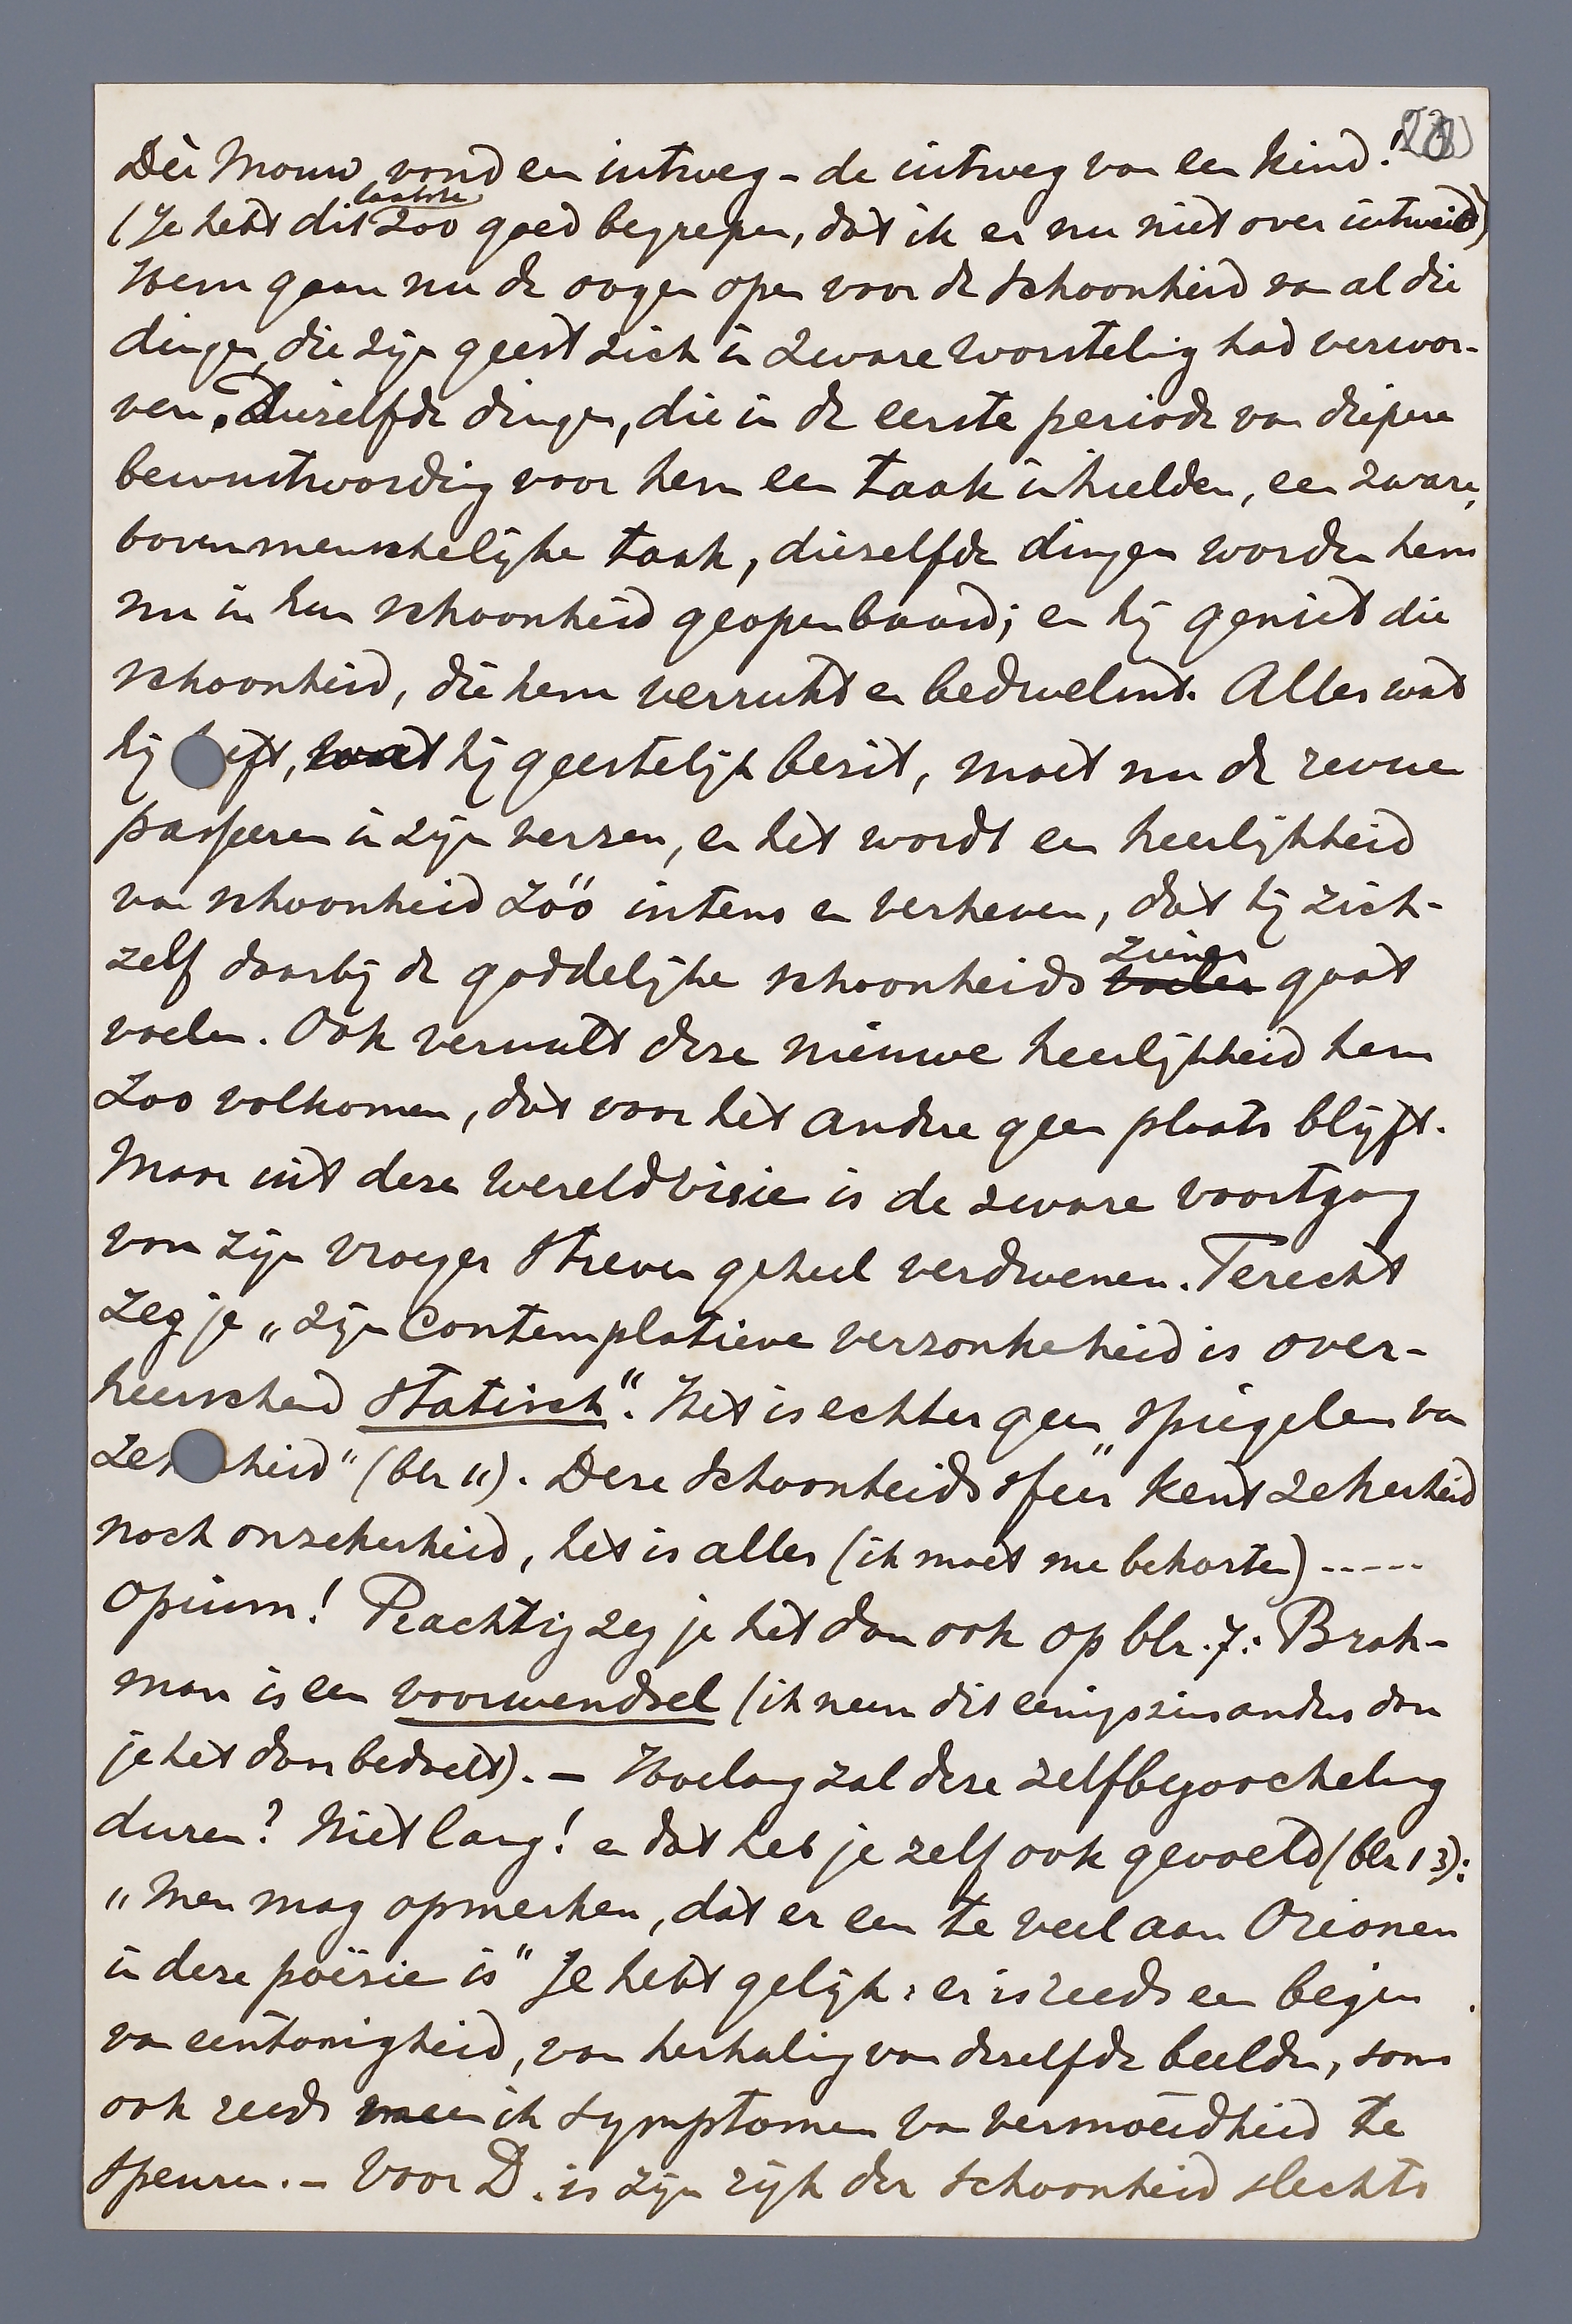 Dèr Mouw vond een uitweg - de uitweg van een kind!
(Je hebt dit laatste zoo goed begrepen, dat ik er nu niet over uitweid)
Hem gaan nu de oogen open voor de schoonheid van al die
dingen, die zijn geest zich in zware worsteling had verwor-
ven. Diezelfde dingen, die in de eerste periode van diepere
bewustwording voor hem een taak inhielden, een zware,
bovenmenschelijke taak, diezelfde dingen worden hem
nu in hun schoonheid geopenbaard; en hij geniet die
schoonheid, die hem verrukt en bedwelmt. Alles wat
hij heeft, wat hij geestelijk bezit, moet nu de revue
passeeren in zijn verzen, en het wordt een heerlijkheid
van schoonheid zóó intens en verheven, dat hij zich-
zelf daarbij de goddelijke schoonheids ziener gaat
voelen. Ook vervult deze nieuwe heerlijkheid hem
zoo volkomen, dat voor het andere geen plaats blijft.
Maar uit deze wereldvisie is de zware voortgang
van zijn vroeger streven geheel verdwenen. Terecht
zeg je „zijn contemplatieve verzonkenheid is over-
heerschend statisch“. Het is echter geen „spiegelen van
zekerheid“ (blz 11). Deze schoonheidssfeer kent zekerheid
noch onzekerheid, het is alles (ik moet me bekorten) -----
opium! Prachtig zeg je het dan ook op blz. 7: Brah-
man is een voorwendsel (ik neem dit eenigszins anders dan
je het daar bedoelt). - Hoelang zal deze zelfbegoocheling
duren? Niet lang! en dat heb je zelf ook gevoeld (blz 13):
„Men mag opmerken, dat er een te veel aan Orionen
in deze poëzie is“ Je hebt gelijk: er is reeds een begin
van eentonigheid, van herhaling van dezelfde beelden, soms
ook reeds meen ik symptomen van vermoeidheid te
speuren. - Voor D. is zijn rijk der schoonheid slechts